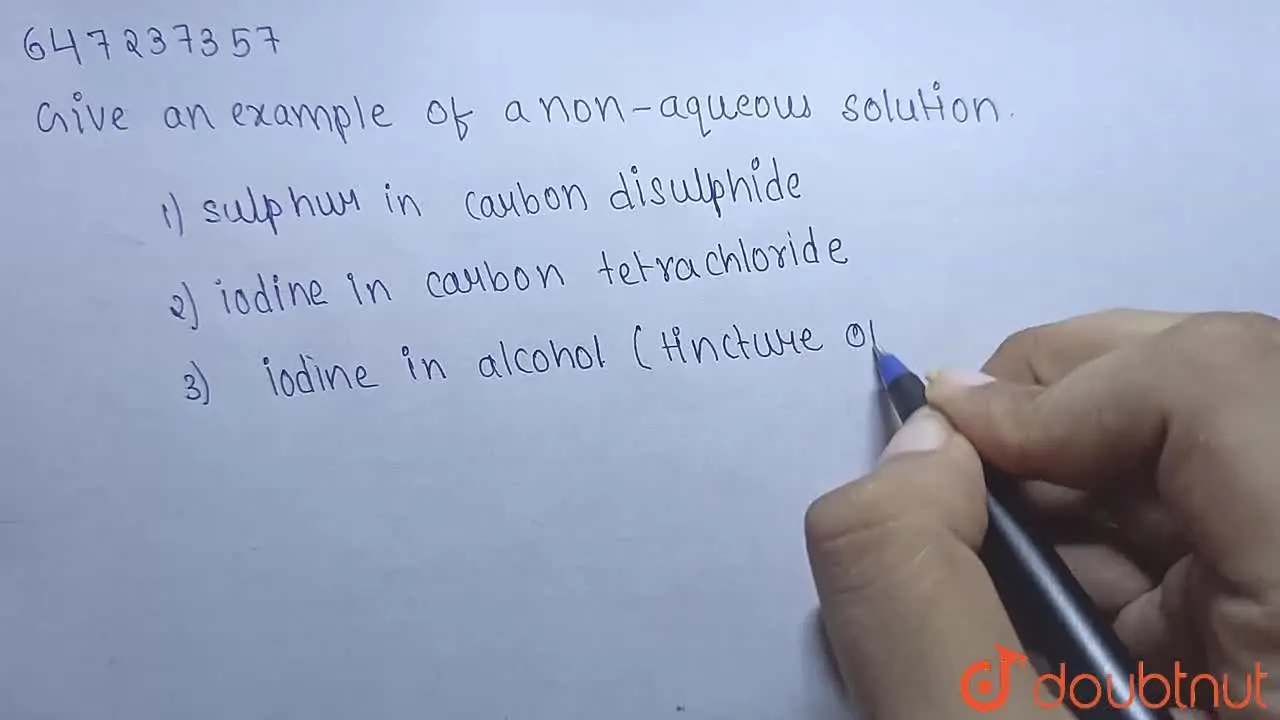 647237357
Give an example of a non-aqueous solution.
1) sulphur in carbon disulphide
2) iodine in carbon tetrachloride
3) iodine in alcohol (tincture of
doubtnut